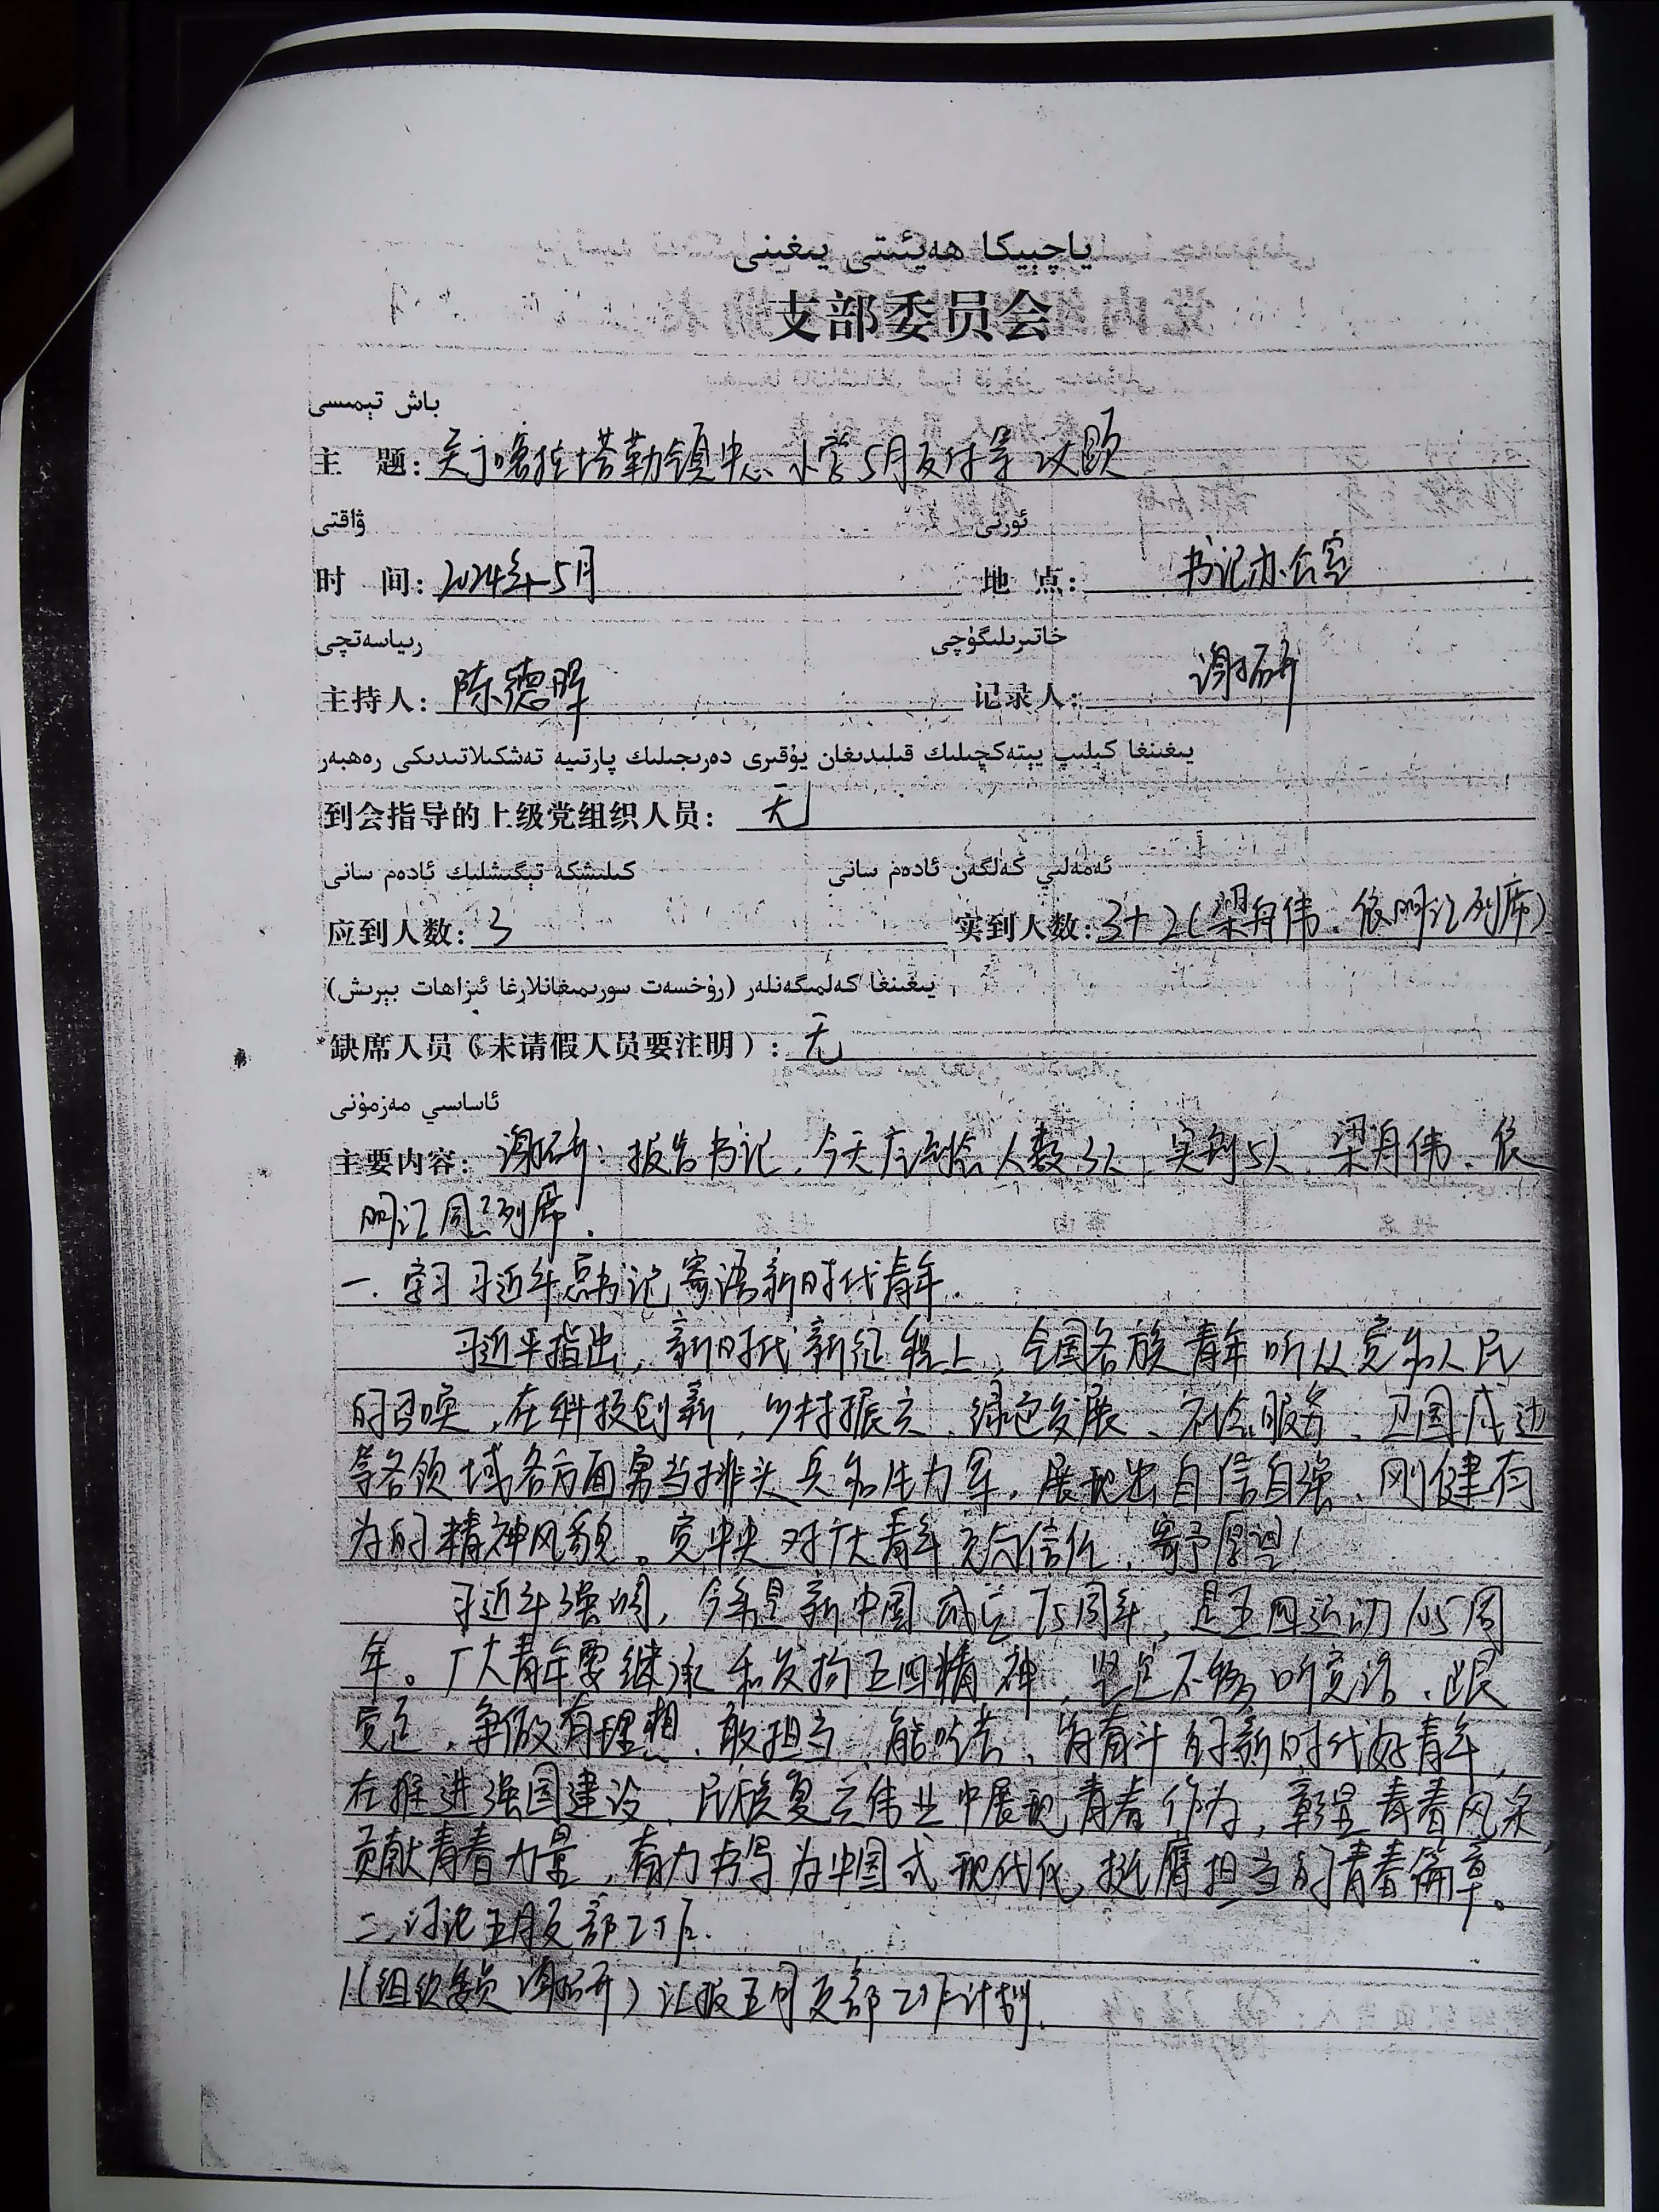 ياچېيكا ھەيئىتى يىغىنى
支部委员会
باش تېمىسى
主 题：关于喀拉塔勒镇中心小学5月支付等议题
ۋاقتى ئورنى
时 间：2024年5月 地 点：书记办公室
رىياسەتچى خاتىرىلىگۈچى
主持人：陈德军 记录人：谢妍
يىغىنغا كېلىپ يېتەكچىلىك قىلىدىغان يۇقىرى دەرىجىلىك پارتىيە تەشكىلاتىدىكى رەھبەر
到会指导的上级党组织人员：无
كېلىشكە تېگىشلىك ئادەم سانى ئەمەلىي كەلگەن ئادەم سانى
应到人数：3 实到人数：3+2（梁舟伟、依明江列席）
يىغىنغا كەلمىگەنلەر (رۇخسەت سورىمىغانلارغا ئىزاھات بېرىش)
缺席人员（未请假人员要注明）：无
ئاساسىي مەزمۇنى
主要内容：谢妍：报告书记，今天应到会人数3人，实到5人，梁舟伟、依
明江同志列席。
一、学习习近平总书记寄语新时代青年。
习近平指出，新时代新征程上，全国各族青年听从党和人民
的召唤，在科技创新、乡村振兴、绿色发展、社会服务、卫国戍边
等各领域各方面勇当排头兵和生力军，展现出自信自强、刚健有
为的精神风貌。党中央对广大青年充分信任，寄予厚望！
习近平强调，今年是新中国成立75周年，是五四运动105周
年。广大青年要继承和发扬五四精神，坚定不移听党话、跟
党走，争做有理想、敢担当、能吃苦、肯奋斗的新时代好青年，
在推进强国建设、民族复兴伟业中展现青春作为，彰显青春风采，
贡献青春力量，奋力书写为中国式现代化挺膺担当的青春篇章。
二、讨论五月支部工作。
1（组织委员 谢妍）汇报五月支部工作计划。